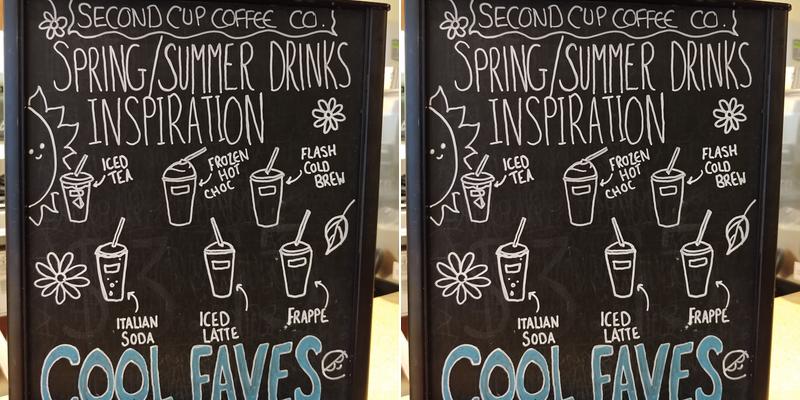 SECOND CUP COFFEE CO.
SPRING/SUMMER DRINKS
INSPIRATION
ICED
TEA
FROZEN
HOT
CHOC
FLASH
COLD
BREW
ITALIAN
SODA
ICED
LATTE
FRAPPÉ
COOL FAVES
SECOND CUP COFFEE CO.
SPRING/SUMMER DRINKS
INSPIRATION
ICED
TEA
FROZEN
HOT
CHOC
FLASH
COLD
BREW
ITALIAN
SODA
ICED
LATTE
FRAPPÉ
COOL FAVES